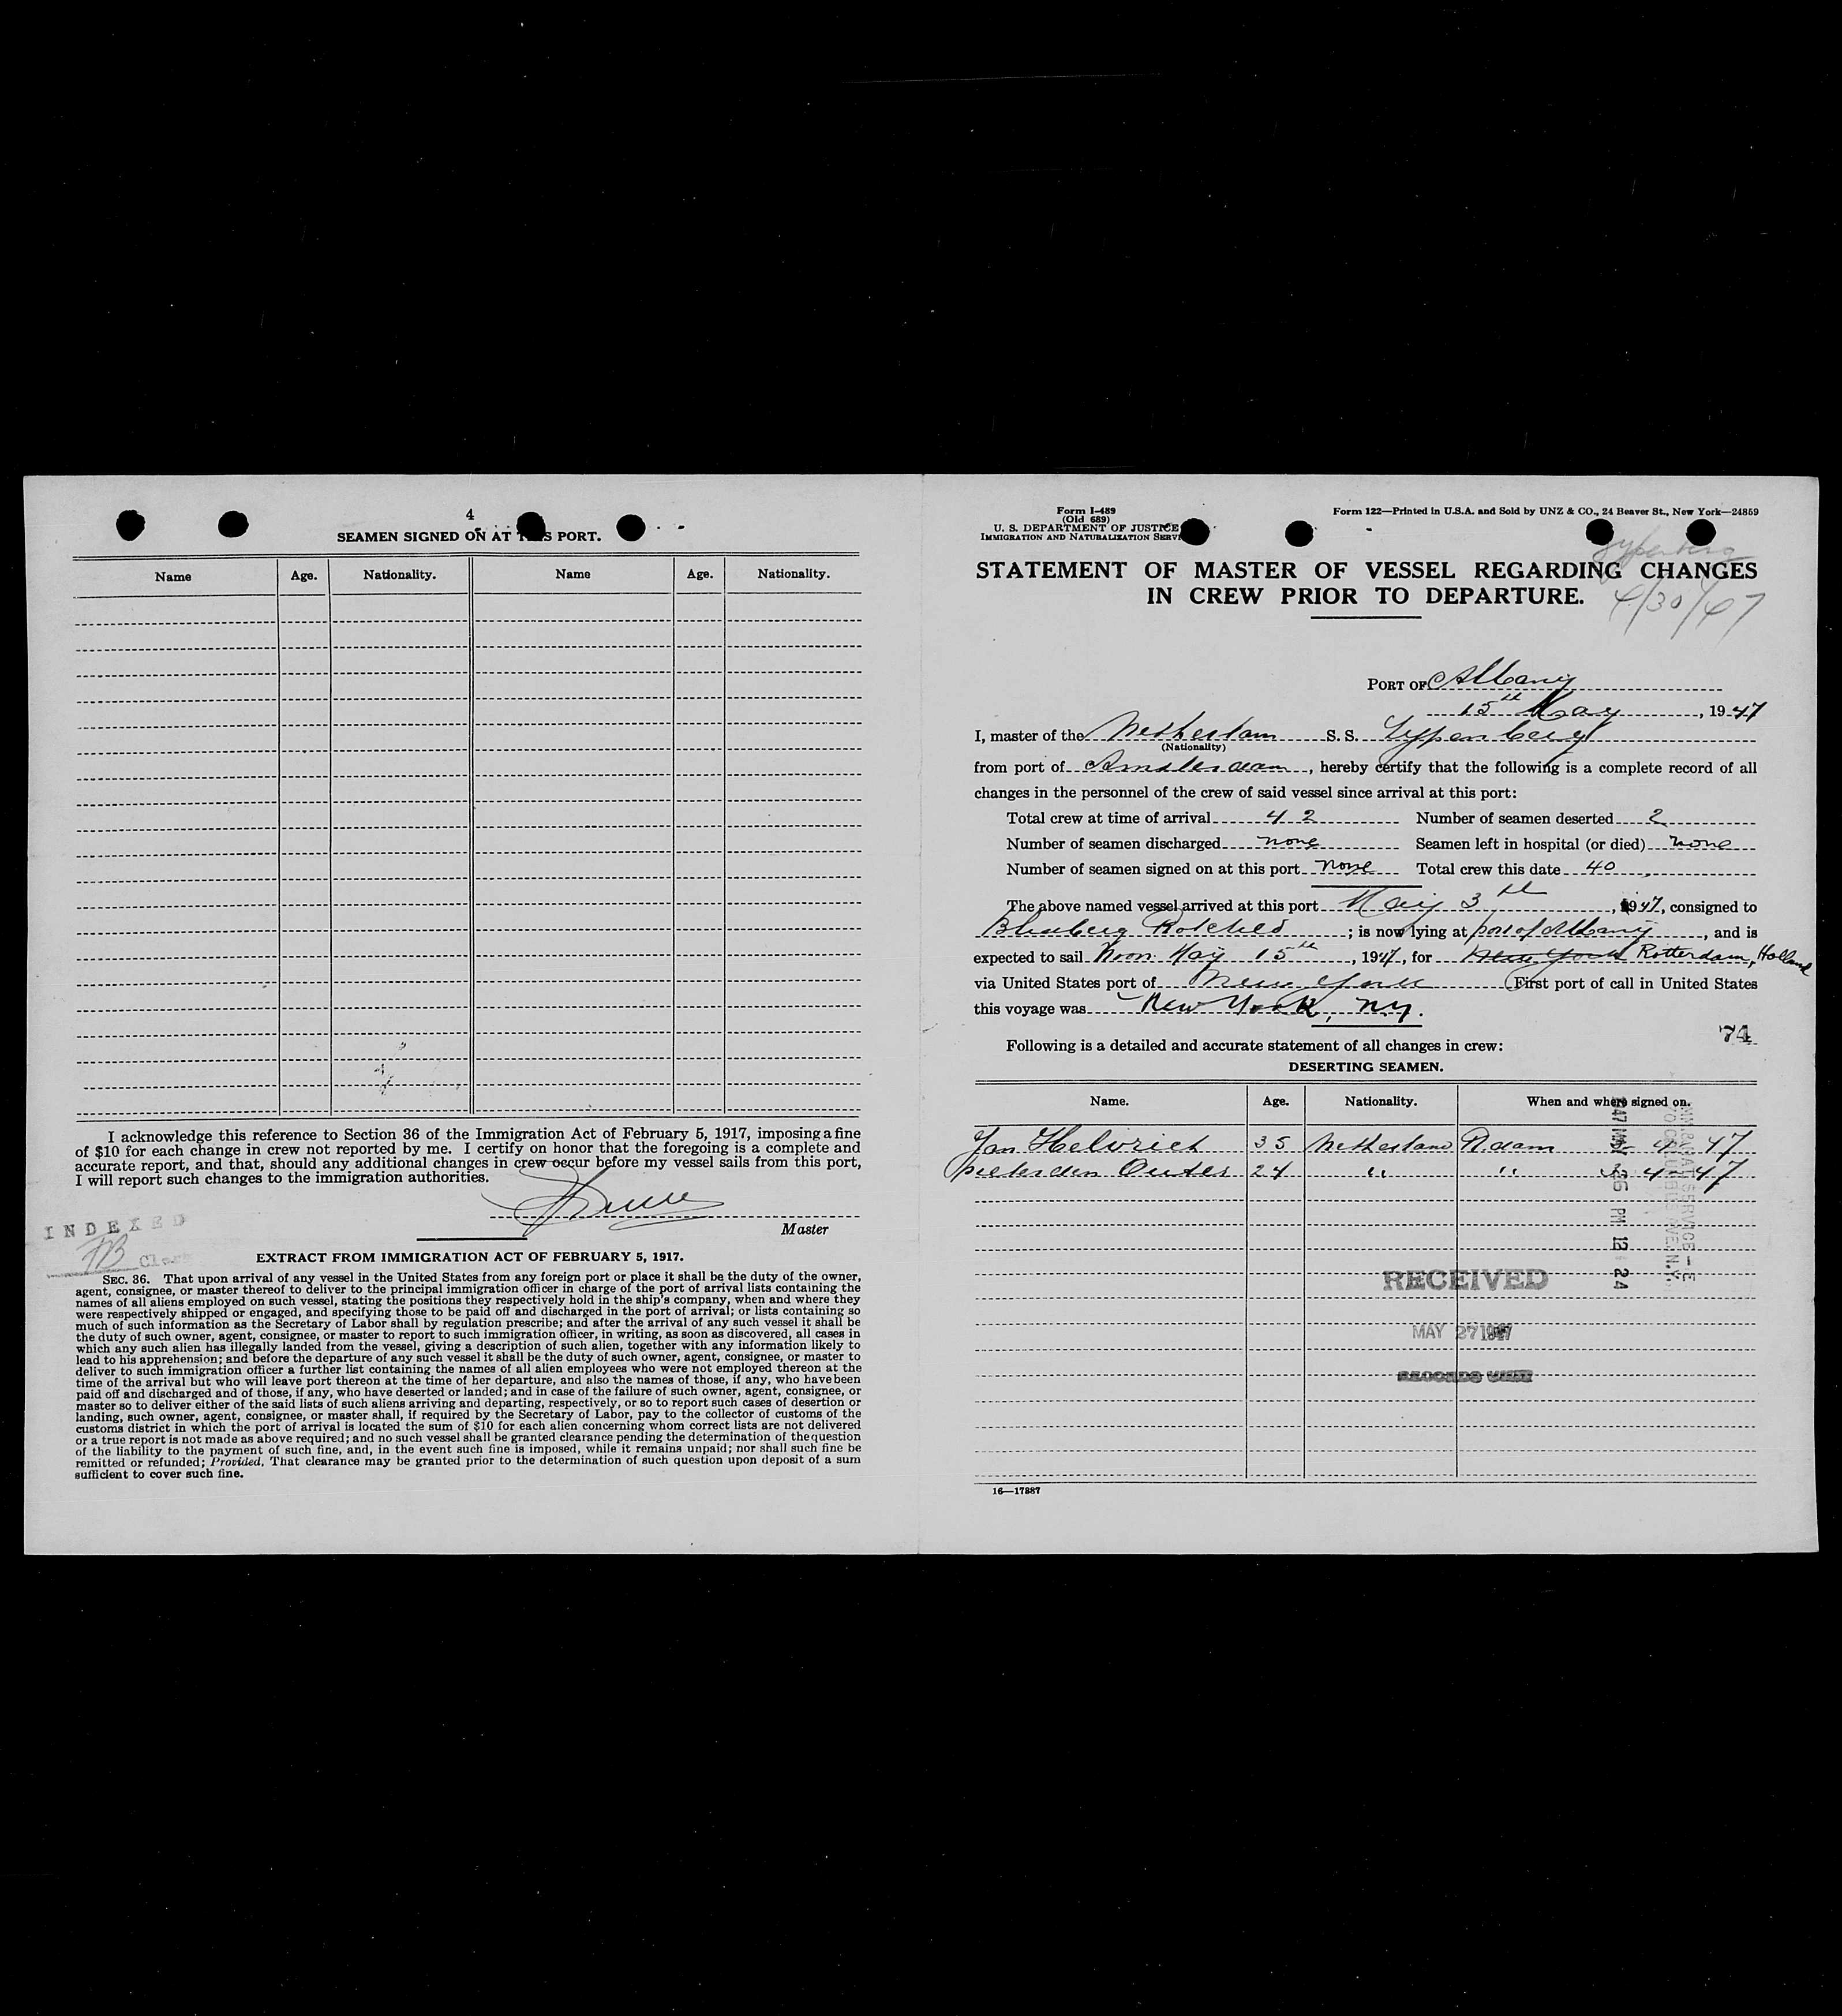 4
SEAMEN SIGNED ON AT THIS PORT.
Name Age. Nationality. Name Age. Nationality.
I acknowledge this reference to Section 36 of the Immigration Act of February 5, 1917, imposing a fine
of $10 for each change in crew not reported by me. I certify on honor that the foregoing is a complete and
accurate report, and that, should any additional changes in crew occur before my vessel sails from this port,
I will report such changes to the immigration authorities.
Master
INDEXED
Clerk
EXTRACT FROM IMMIGRATION ACT OF FEBRUARY 5, 1917.
SEC. 36. That upon arrival of any vessel in the United States from any foreign port or place it shall be the duty of the owner,
agent, consignee, or master thereof to deliver to the principal immigration officer in charge of the port of arrival lists containing the
names of all aliens employed on such vessel, stating the positions they respectively hold in the ship's company, when and where they
were respectively shipped or engaged, and specifying those to be paid off and discharged in the port of arrival; or lists containing so
much of such information as the Secretary of Labor shall by regulation prescribe; and after the arrival of any such vessel it shall be
the duty of such owner, agent, consignee, or master to report to such immigration officer, in writing, as soon as discovered, all cases in
which any such alien has illegally landed from the vessel, giving a description of such alien, together with any information likely to
lead to his apprehension; and before the departure of any such vessel it shall be the duty of such owner, agent, consignee, or master to
deliver to such immigration officer a further list containing the names of all alien employees who were not employed thereon at the
time of the arrival but who will leave port thereon at the time of her departure, and also the names of those, if any, who have been
paid off and discharged and of those, if any, who have deserted or landed; and in case of the failure of such owner, agent, consignee, or
master so to deliver either of the said lists of such aliens arriving and departing, respectively, or so to report such cases of desertion or
landing, such owner, agent, consignee, or master shall, if required by the Secretary of Labor, pay to the collector of customs of the
customs district in which the port of arrival is located the sum of $10 for each alien concerning whom correct lists are not delivered
or a true report is not made as above required; and no such vessel shall be granted clearance pending the determination of the question
of the liability to the payment of such fine, and, in the event such fine is imposed, while it remains unpaid; nor shall such fine be
remitted or refunded; Provided, That clearance may be granted prior to the determination of such question upon deposit of a sum
sufficient to cover such fine.
Form I-489
(Old 689)
U. S. DEPARTMENT OF JUSTICE
IMMIGRATION AND NATURALIZATION SERVI
Form 122—Printed in U.S.A. and Sold by UNZ & CO., 24 Beaver St., New York—24859
STATEMENT OF MASTER OF VESSEL REGARDING CHANGES
IN CREW PRIOR TO DEPARTURE.
4/30/47
PORT OF Albany
15th May, 1947
I, master of the S. S. Sypenberg
(Nationality)
from port of Amsterdam, hereby certify that the following is a complete record of all
changes in the personnel of the crew of said vessel since arrival at this port:
Total crew at time of arrival 42 Number of seamen deserted 2
Number of seamen discharged none Seamen left in hospital (or died) none
Number of seamen signed on at this port none Total crew this date 40
The above named vessel arrived at this port May 3th, 1947, consigned to
; is now lying at port of Albany, and is
expected to sail Noon May 15th, 1947, for New York Rotterdam, Holland
via United States port of New York First port of call in United States
this voyage was New York, NY.
74
Following is a detailed and accurate statement of all changes in crew:
DESERTING SEAMEN.
Name. Age. Nationality. When and where signed on.
Jan Helvrich 35 Netherland Rdam 4 47
Pieter den Outer 24 " " 4 47
1947 MAY 26 PM 12 24
RECEIVED
MAY 27 1947
RECORDS UNIT
16—17887